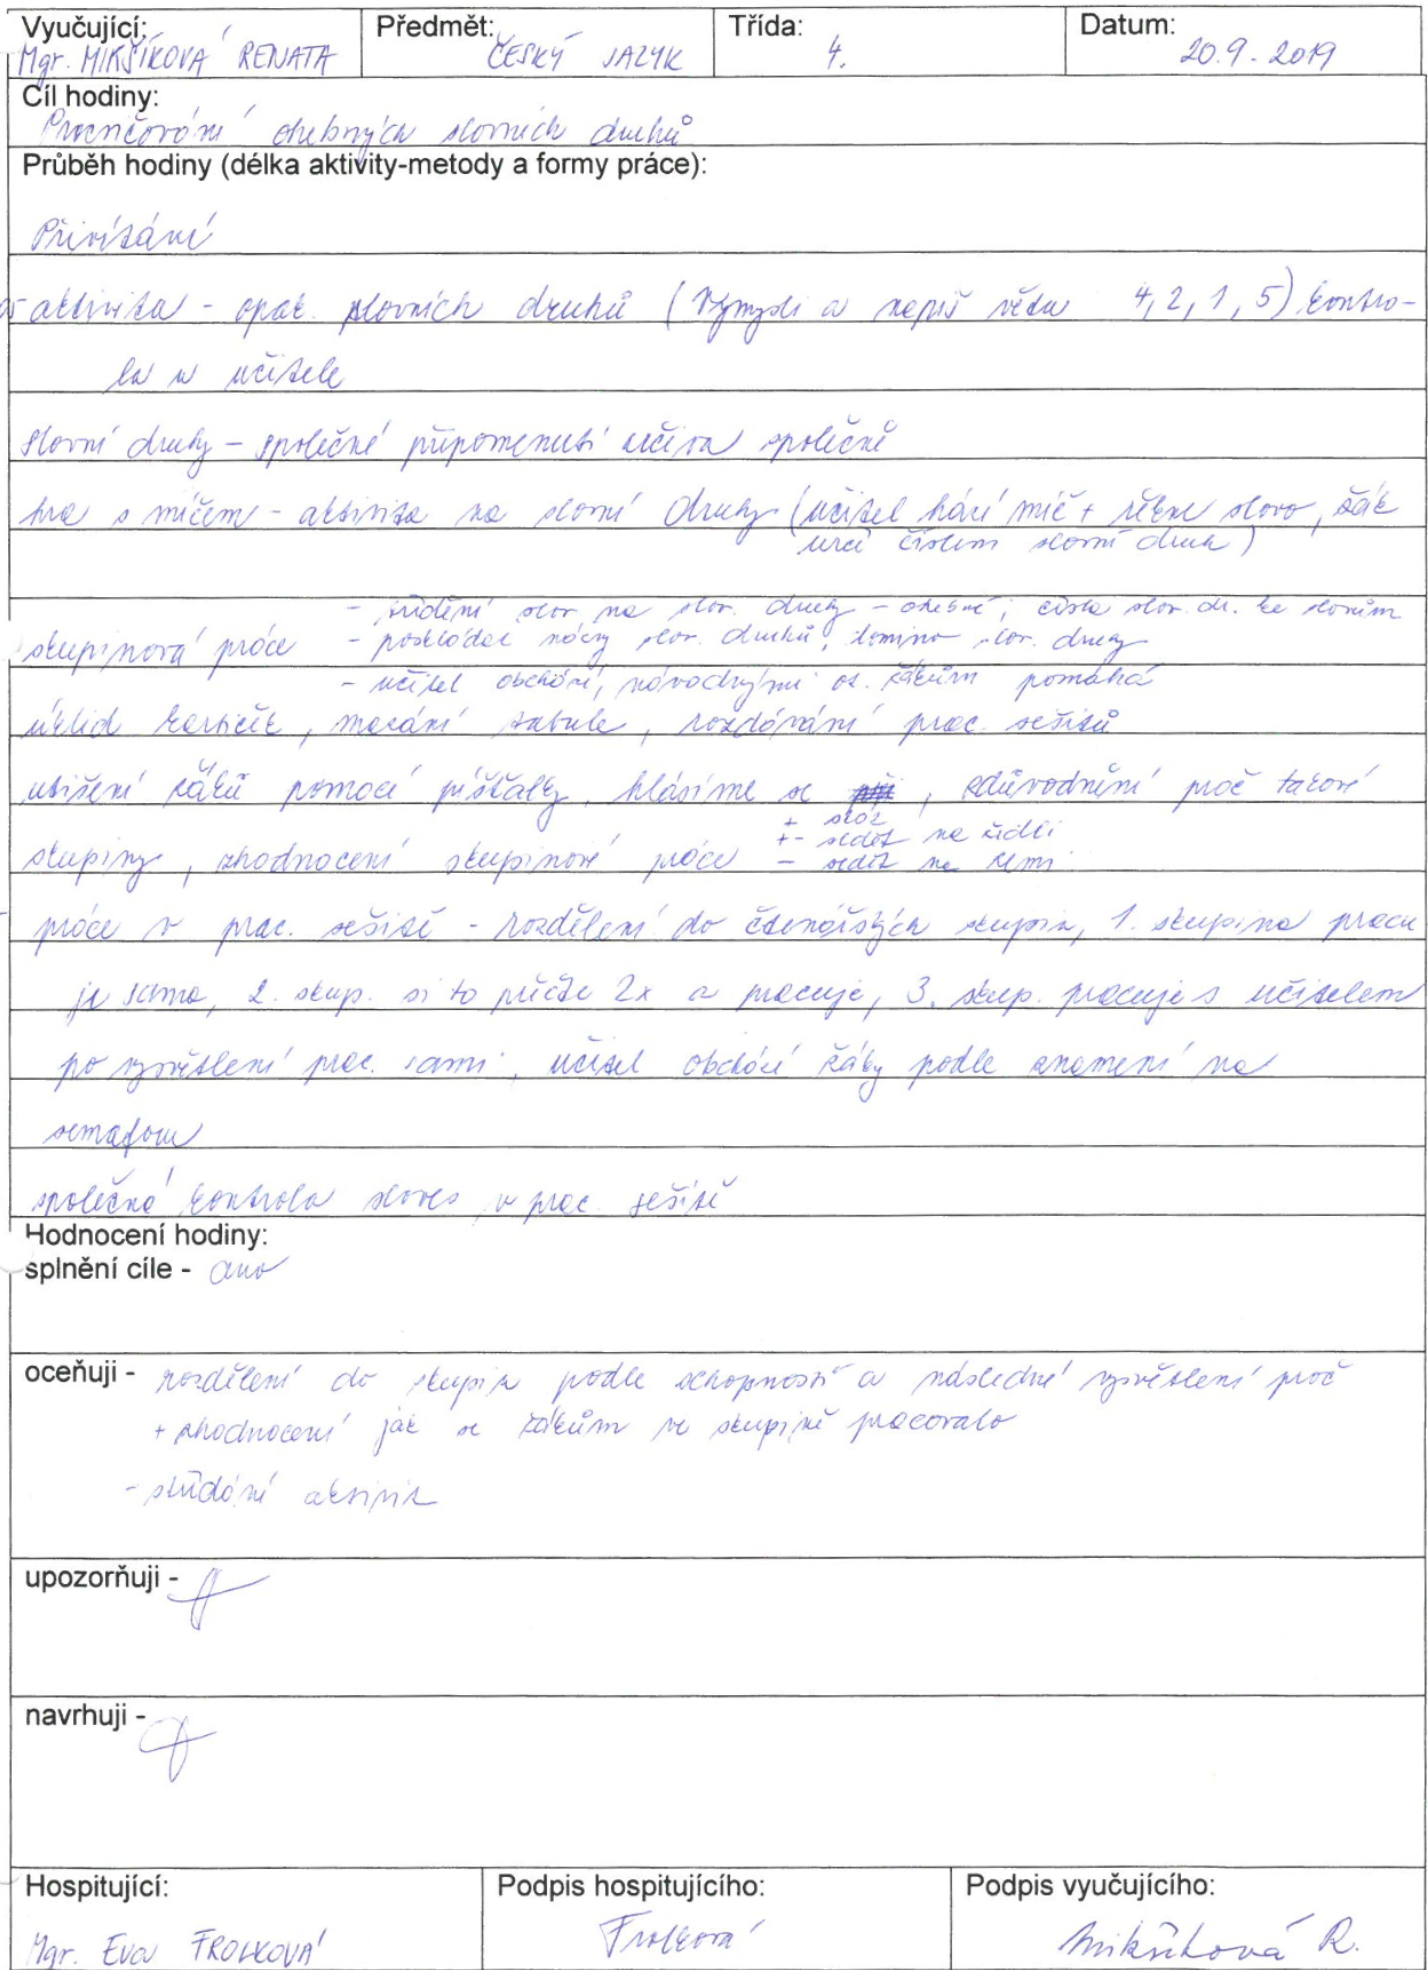 Vyučující: Předmět: Třída: Datum:
Mgr. MIKŠÍKOVÁ RENATA ČESKÝ JAZYK 4. 20.9.2019
Cíl hodiny:
Procvičování ohebných slovních druhů
Průběh hodiny (délka aktivity-metody a formy práce):
Přivítání
aktivita - opak. slovních druhů (Vymysli a napiš větu 4, 2, 1, 5) kontro-
la u učitele
slovní druhy - společné připomenutí učiva společně
hra s míčem - aktivita na slovní druhy (učitel hází míč + řekne slovo, žák
určí číslem slovní druh)
- třídění slov na slov. druhy - ohebné, čísla slov. dr. ke slovům
skupinová práce - poskládat názvy slov. druhů, domino slov. druhy
- učitel obchází, návodnými ot. žákům pomáhá
úklid kartiček, mazání tabule, rozdávání prac. sešitů
utišení žáků pomocí píšťalky, hlásíme se, zdůvodnění proč takové
+ stát
+- sedět na židli
skupiny, zhodnocení skupinové práce - sedět na zemi
práce v prac. sešitě - rozdělení do čtenářských skupin, 1. skupina pracu
je sama, 2. skup. si to přečte 2x a pracuje, 3. skup. pracuje s učitelem
po vysvětlení prac. sami, učitel obchází žáky podle znamení na
semaforu
společná kontrola sloves v prac. sešitě
Hodnocení hodiny:
splnění cíle - ano
oceňuji - rozdělení do skupin podle schopností a následné vysvětlení proč
+ zhodnocení jak se žákům ve skupině pracovalo
- střídání aktivit
upozorňuji -
navrhuji -
Hospitující: Podpis hospitujícího: Podpis vyučujícího:
Mgr. Eva FROLKOVÁ Frolková Mikšíková R.